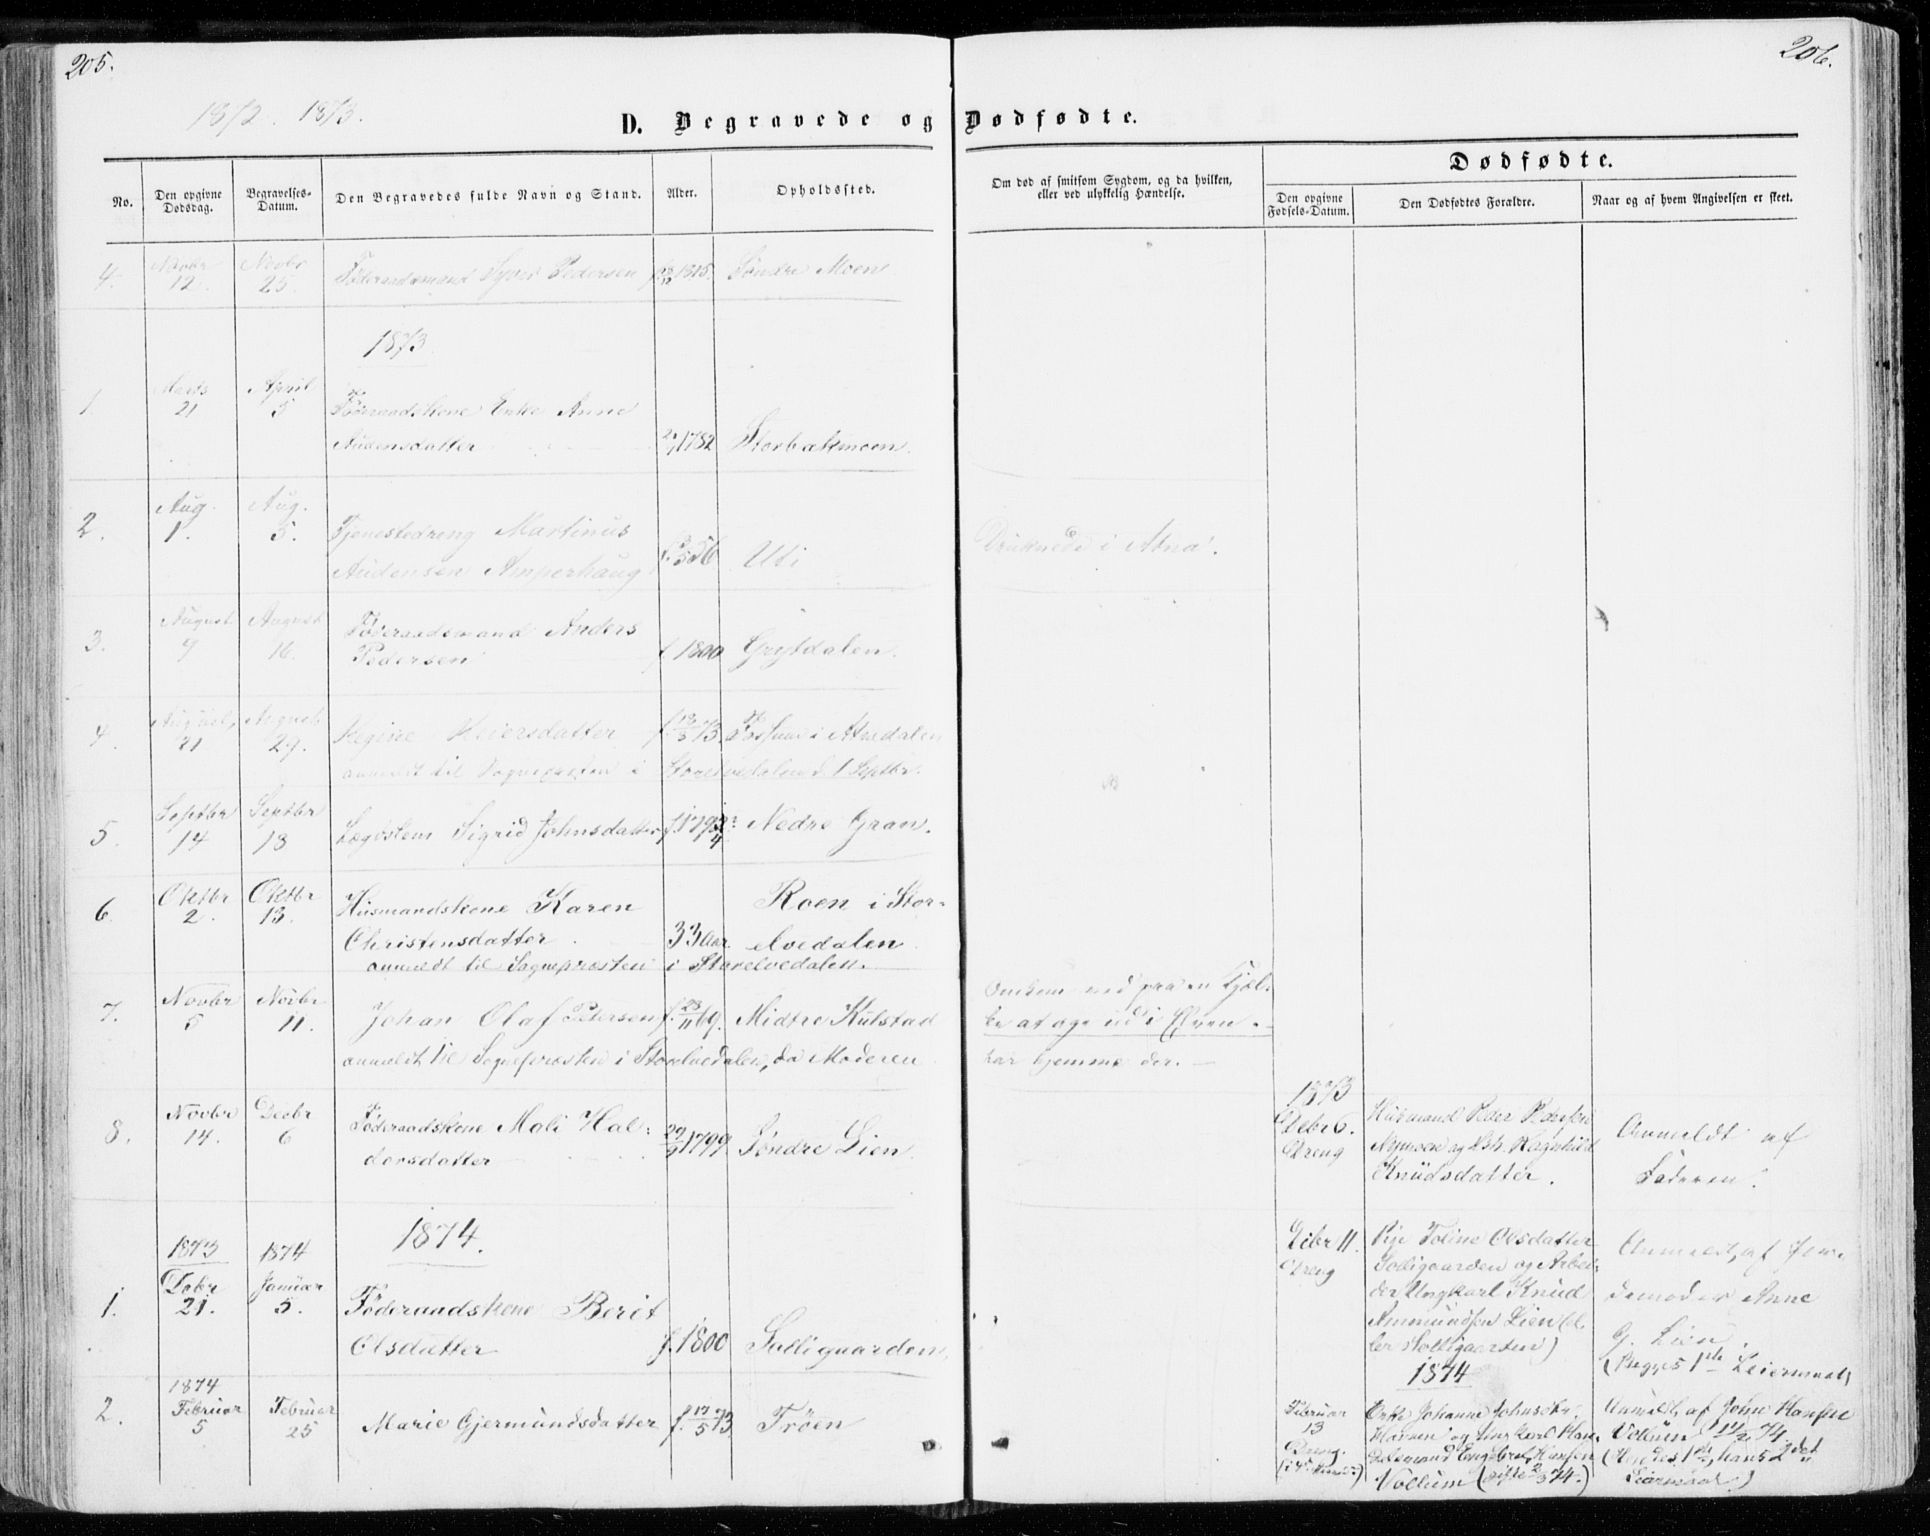 205.
206.
1872. 1873.
D. Begravede og Dødfødte.
No.
Den opgivne Dødsdag.
Begravelses-Datum.
Den Begravedes fulde Navn og Stand.
Alder.
Opholdssted.
Om død af smitsom Sygdom, og da hvilken, eller ved ulykkelig Hændelse.
Dødfødte.
Den opgivne Fødsels-Datum.
Den Dødfødtes Forældre.
Naar og af hvem Angivelsen er skeet.
4. Novbr 12. Novbr 25. Føderaadsmand Syver Pedersen 1815. Søndre Moen
1873
1. Marts 21 April 5 Føderaadskone Enke Anne
Audensdatter 1782 Storbækmoen.
2. Aug. 1. Aug. 5. Tjenestedreng Martinus
Audensen Amperhaug 56 Uti Druknede i Atna.
3. August 9 August 16. Føderaadsmand Anders
Pedersen f 1800 Grytdalen.
4. August 21 August 29. Regine Reiersdatter 73. Fossum i Atnedalen
anmeldt til Sognepræsten i Storelvedalen d. 1 Septbr.
5. Septbr 14 Septbr 13 Lægdslem Sigrid Johnsdatter Nedre Gran.
6. Oktbr 2. Oktbr 13. Husmandskone Karen Roen i Stor-
Christensdatter. 33 Aar. elvedalen.
anmeldt til Sognepræsten i Storelvedalen.
7. Novbr 5 Novbr 11. Johan Olaf Petersen f. 23/11 69. Midtre Kulstad
anmeldt til Sognepræsten i Storelvedalen, da Moderen
Omkom ved paa en Kjæl-
ke at age ud i Elven.
har hjemme der.
8. Novbr 14. Decbr 6 Føderaadskone Mali Hal-
dorsdatter 1799 Søndre Lien.
1873
Decbr 6. Dreng Husmand Peder Pedersen
Nymoen og Hst. Ragnhild
Knudsdatter.
Anmeldt af
Faderen.
1874.
1. 1873 Decbr 21. 1874 Januar 5. Føderaadskone Berit
Olsdatter f. 1800 Solligaarden
Decbr 11. Dreng Pige Toline Olsdatter
Solligaarden og Arbei-
der Ungkarl Knud
Ammundsen Lien (el-
ler Solligaarden)
Anmeldt, af Jor-
demoder Anne
G. Lien.
(Begges 1ste Leiermaal)
1874
2. 1874 Februar 5 Februar 25 Marie Gjermundsdatter f. 17/5 73 Trøen
Februar 13 Dreng. Enke Johanne Johnsdtr.
og Ungkarl Han-
delsmand Engebret Hansen
Vollum
Anmeldt, af John Hansen
Vollum 74
(Hendes 1ste, hans 2det
Leiermaal)